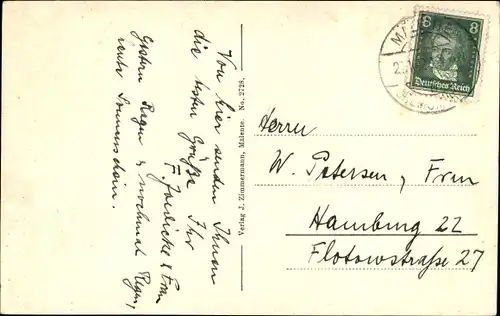 Von hier senden Ihnen
die besten Grüße
Ihr
F. & Frau
Gestern Regen & nochmal Regen,
heute Sonnenschein.
Verlag J. Zimmermann, Malente. No. 2728.
8 8
Deutsches Reich
Herrn
W. Petersen, Frau
Hamburg 22
Flotowstraße 27